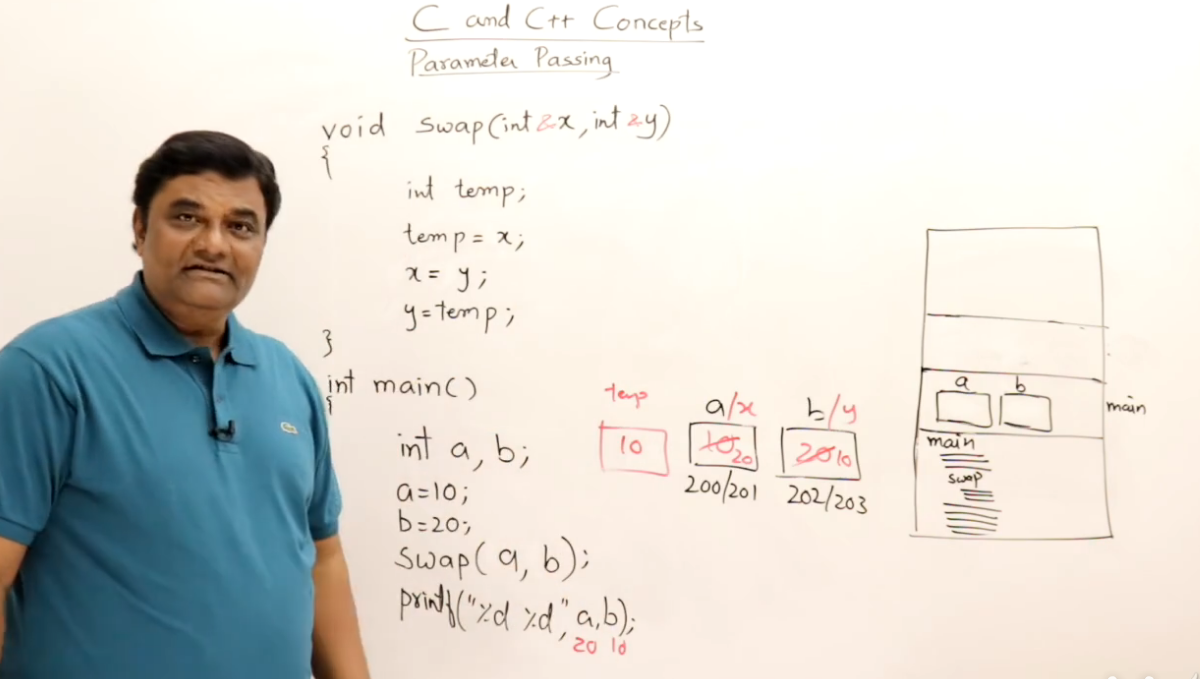 C and C++ Concepts
Parameter Passing
void swap(int &x, int &y)
{
int temp;
temp = x;
x = y;
y = temp;
}
int main()
{
int a, b;
a=10;
b=20;
swap(a, b);
printf("%d %d", a,b);
20 10
temp
10
a/x
10 20
200/201
b/y
20 10
202/203
a b
main
main
swap